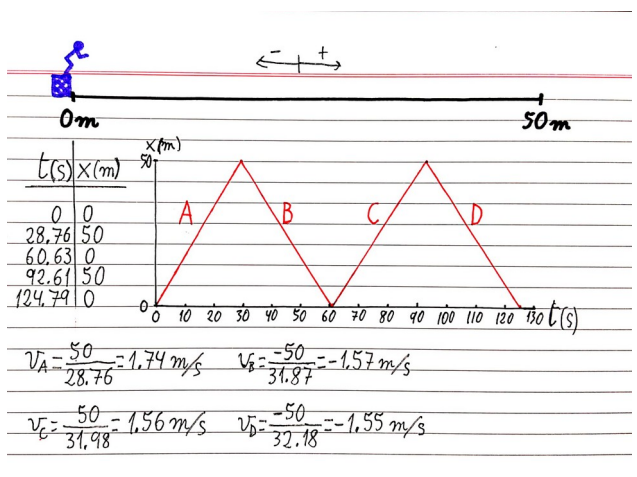 − +
0m 50m
t(s) x(m)
0 0
28.76 50
60.63 0
92.61 50
124.79 0
x(m)
50
A B C D
0
0 10 20 30 40 50 60 70 80 90 100 110 120 130 t(s)
v_A = 50/28.76 = 1.74 m/s v_B = -50/31.87 = -1.57 m/s
v_C = 50/31.98 = 1.56 m/s v_D = -50/32.18 = -1.55 m/s